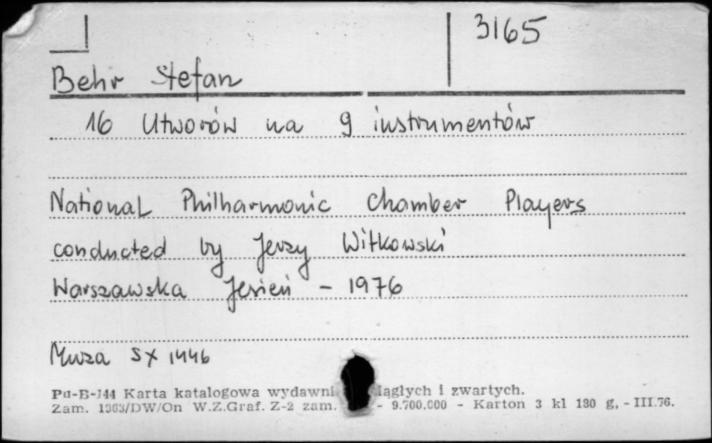 3165
Behr Stefan
16 Utworów na 9 instrumentów
National Philharmonic Chamber Players
conducted by Jerzy Witkowski
Warszawska Jesień - 1976
Muza SX 1446
Pu-B-144 Karta katalogowa wydawni ciągłych i zwartych.
Zam. 1303/DW/On W.Z.Graf. Z-2 zam. - 9.700.000 - Karton 3 kl 180 g, - III.76.